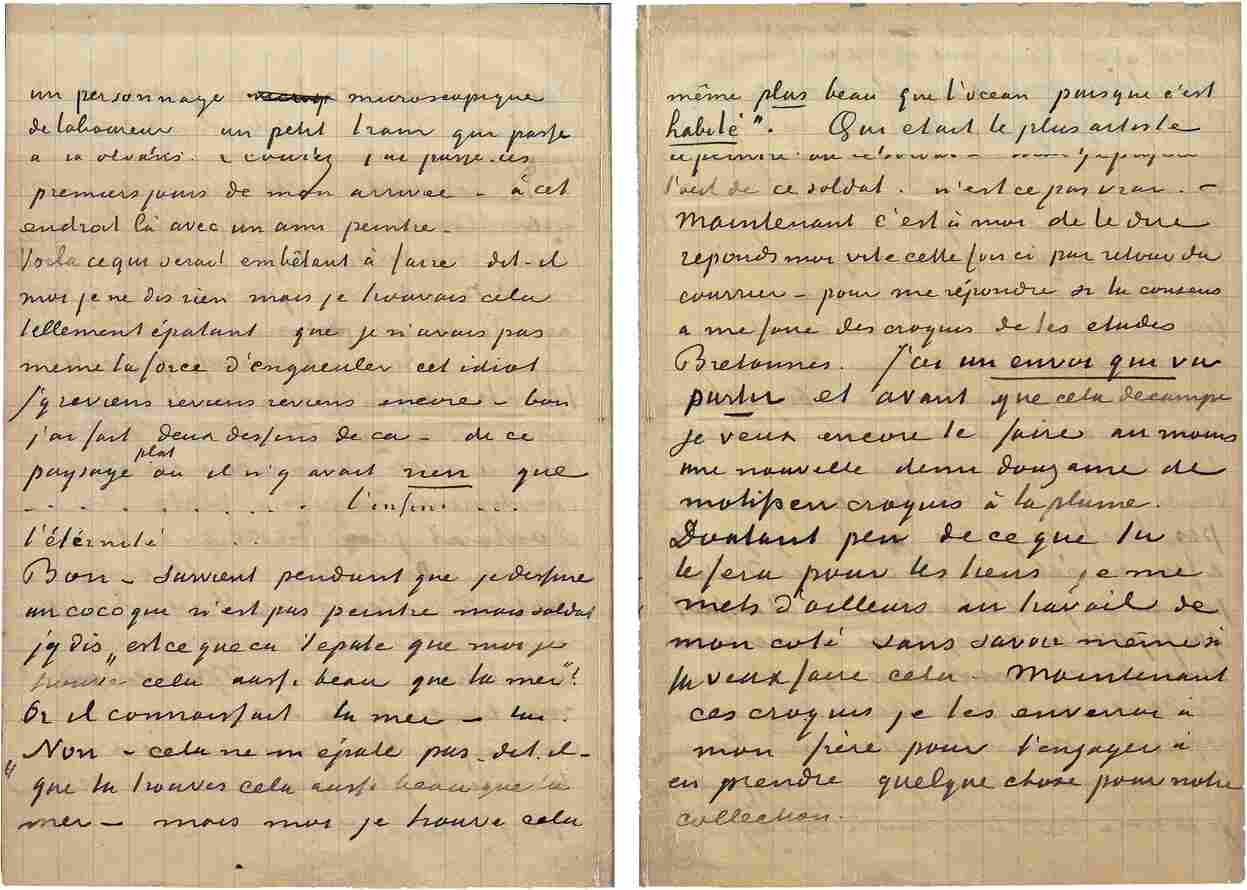 un personnage microscopique
de laboureur un petit train qui passe
premiers jours de mon arrivée – à cet
endroit là avec un ami peintre –
Voila ce qui serait embêtant à faire dit-il
moi je ne dis rien mais je trouvais cela
tellement épatant que je n'avais pas
meme la force d'engueuler cet idiot
j'y reviens reviens reviens encore – bon
j'ai fait deux dessins de ca – de ce
paysage plat où il n'y avait rien que
. . . . . . . . . . l'infini . . .
l'étérnité . .
Bon – survient pendant que je dessine
un coco que n'est pas peintre mais soldat
j'y dis „est ce que ca t'epate que moi je
trouve cela aussi beau que la mer"?
Or il connaissait la mer – lui.
"Non – cela ne m'épate pas – dit-il –
que tu trouves cela aussi beau que la
mer – mais moi je trouve cela
même plus beau que l'ocean puisque c'est
habité". Qui etait le plus artiste
l'oeil de ce soldat. n'est ce pas vrai. –
Maintenant c'est à moi de te dire
reponds moi vite cette fois ci par retour du
courrier – pour me répondre si tu consens
a me faire des croquis de tes etudes
Bretonnes. J'ai un envoi qui va
partir et avant que cela decampe
je veux encore te faire au moins
une nouvelle demi douzaine de
motifs en croquis à la plume.
Doutant peu de ce que tu
le fera pour les tiens je me
mets d'ailleurs au travail de
mon coté sans savoir même si
tu veux faire cela – Maintenant
ces croquis je les enverrai à
mon frère pour l'engager à
en prendre quelque chose pour notre
collection.